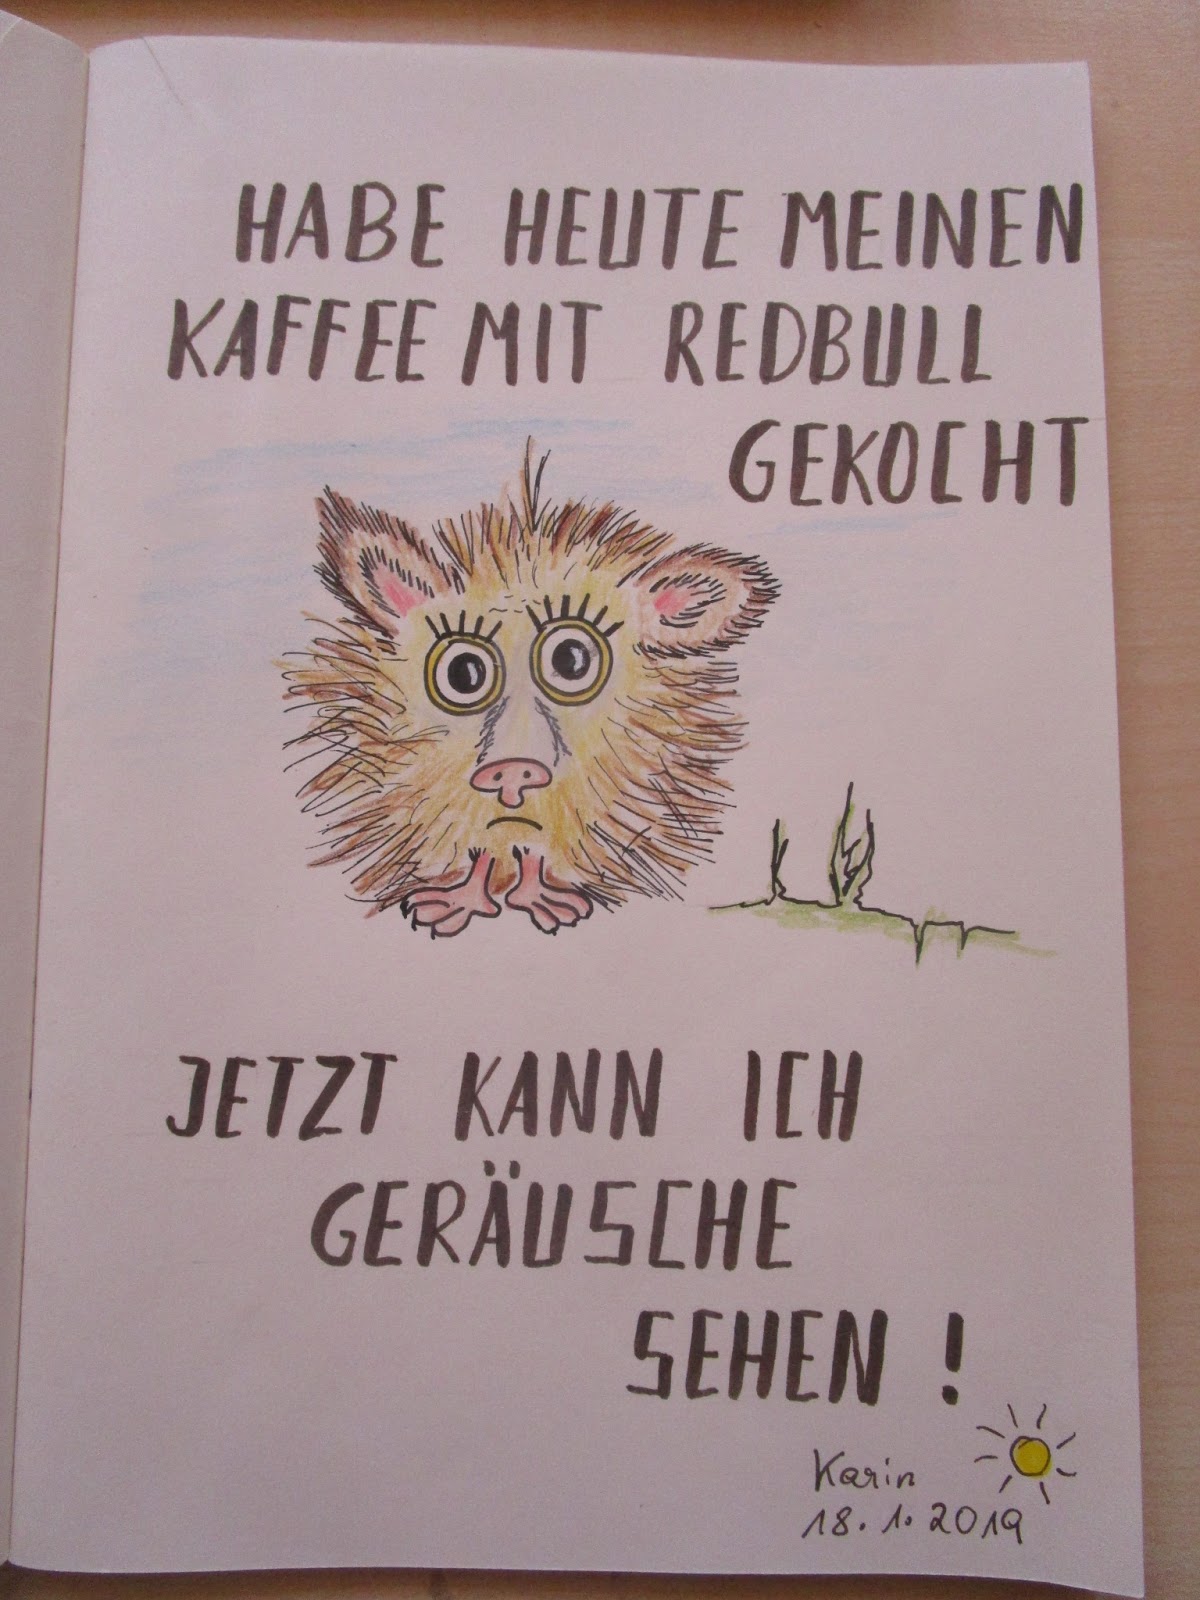 HABE HEUTE MEINEN
KAFFEE MIT REDBULL
GEKOCHT
JETZT KANN ICH
GERÄUSCHE
SEHEN !
Karin
18.1.2019